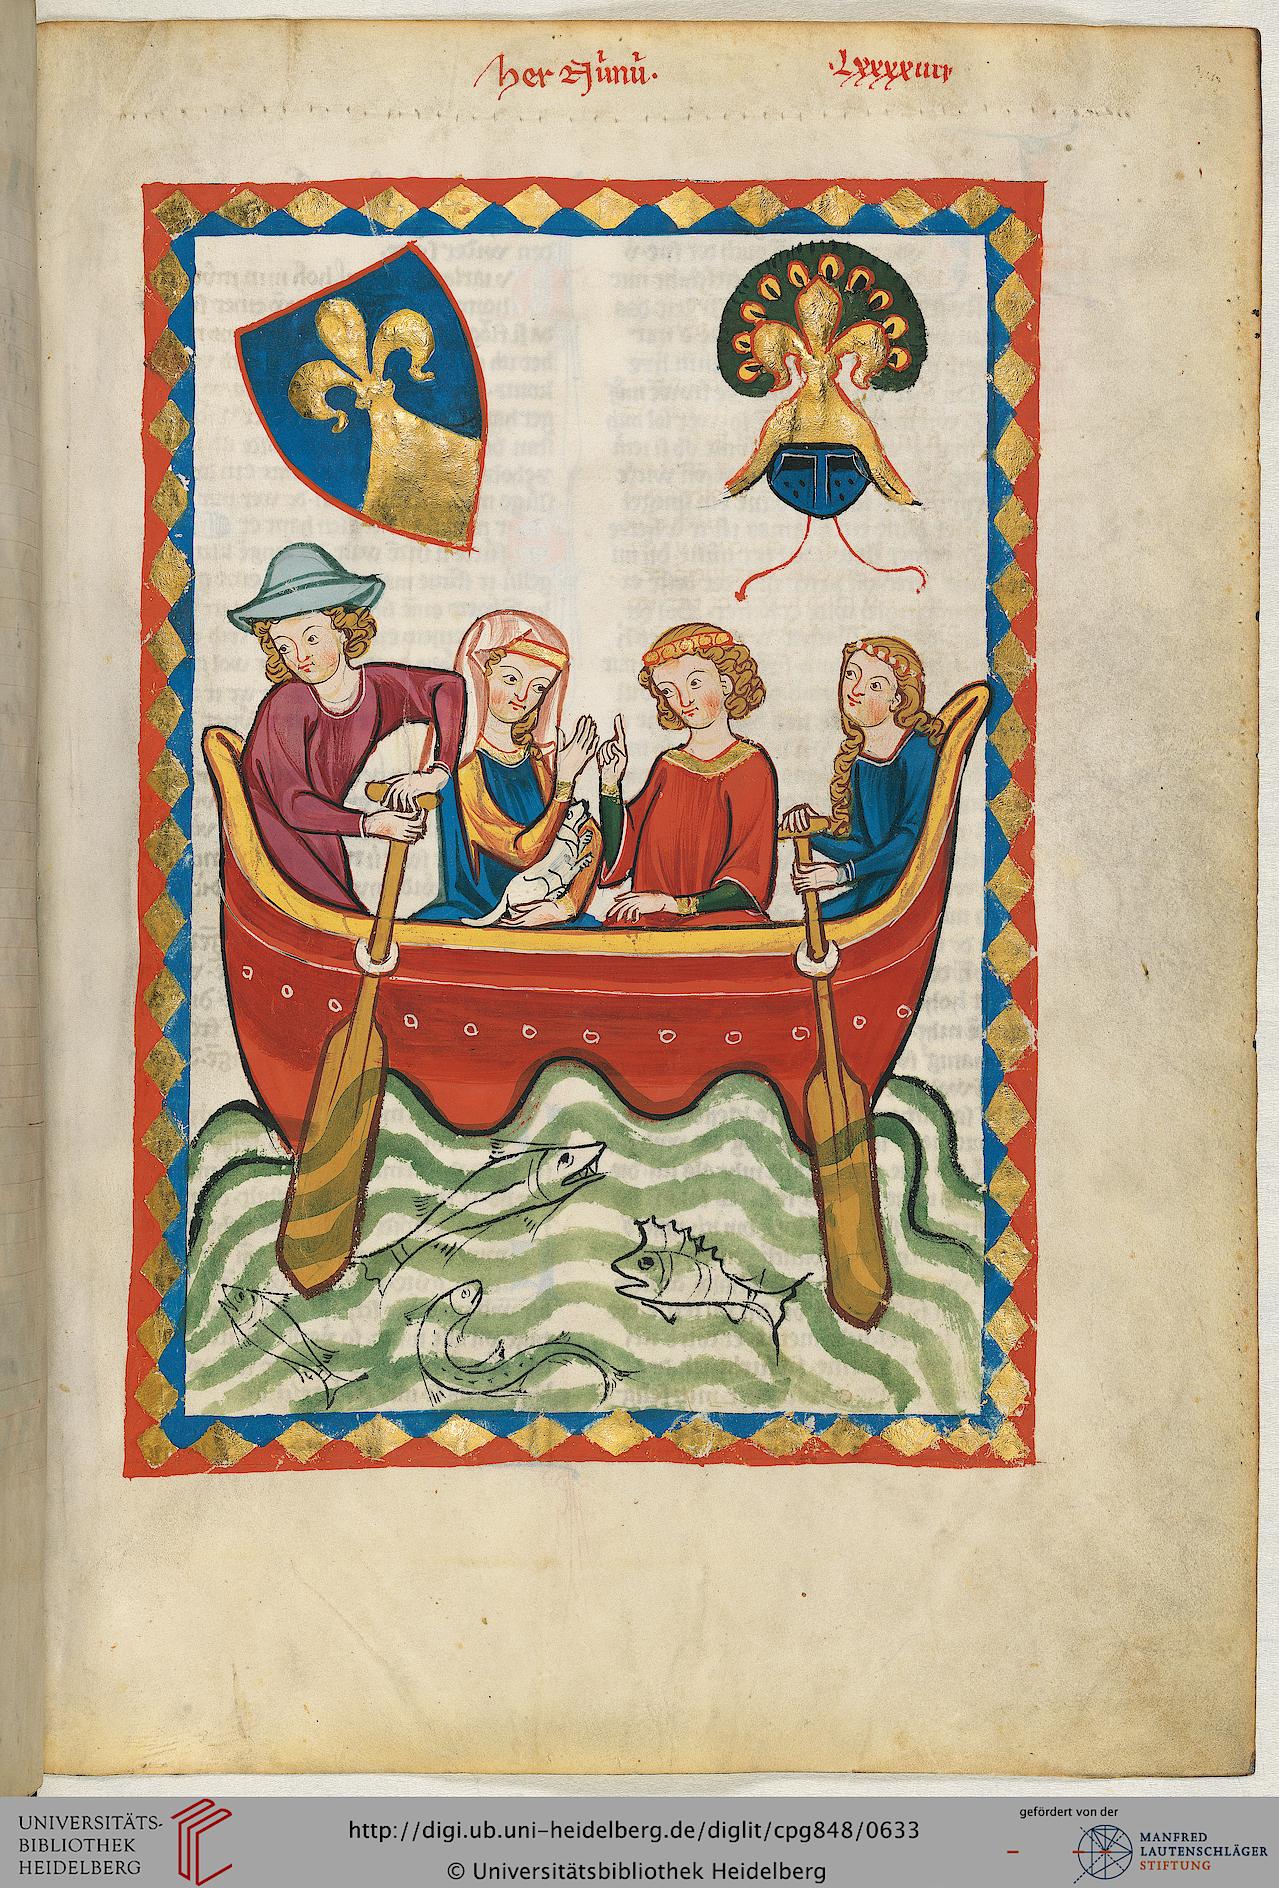 her Niuniu.
.Lxxxxiiij
UNIVERSITÄTS-
BIBLIOTHEK
HEIDELBERG
http://digi.ub.uni-heidelberg.de/diglit/cpg848/0633
© Universitätsbibliothek Heidelberg
gefördert von der
MANFRED
LAUTENSCHLÄGER
STIFTUNG